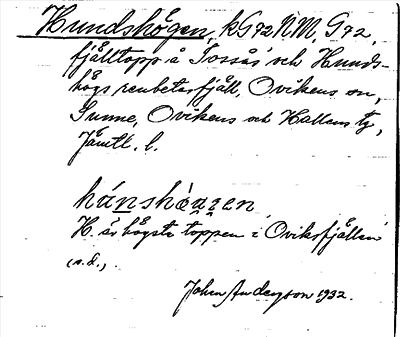 Hundshögen, kG72NM, G72,
fjälltopp å Sossås och Hunds-
högs renbetesfjäll, Ovikens sn,
Sunne, Ovikens och Hallens tg,
Jämtl. l.
húnshö̀gen
H. är högsta toppen i Oviksfjällen
(s.d.).
John Anderson 1932.